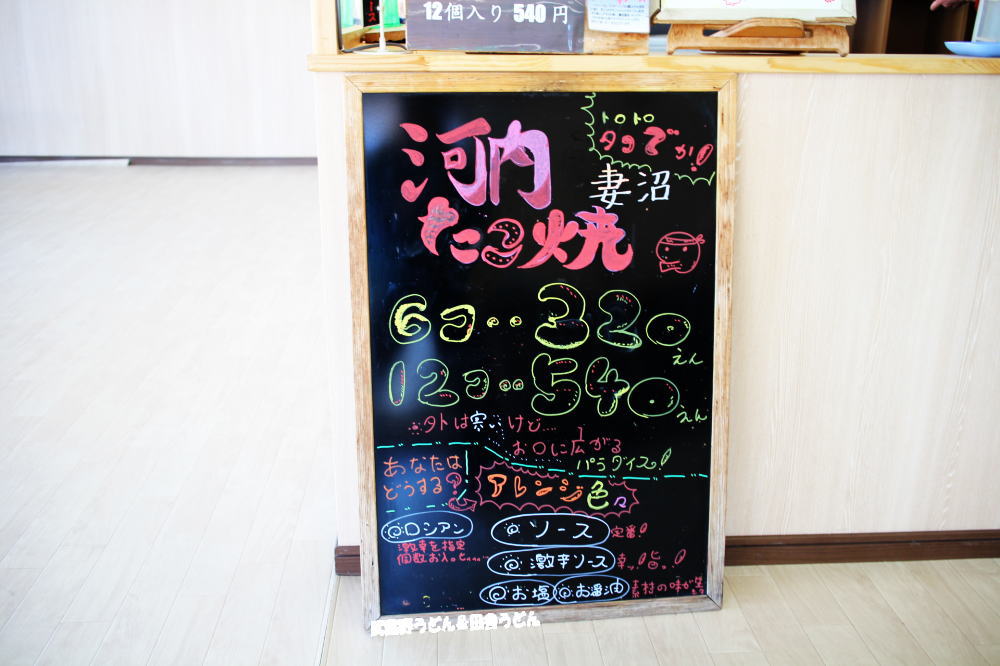 12個入り 540円
トロトロ
タコでか!
河内
妻沼
たこ焼
6コ・・320えん
12コ・・540えん
外は寒いけど...
お口に広がる
パラダイス!
あなたは
どうする?
アレンジ色々
◎ロシアン
激辛を指定
個数お入れ
◎ソース 定番!
◎激辛ソース 辛っ!旨っ!
◎お塩 ◎お醤油 素材の味が生
うどん&田舎うどん